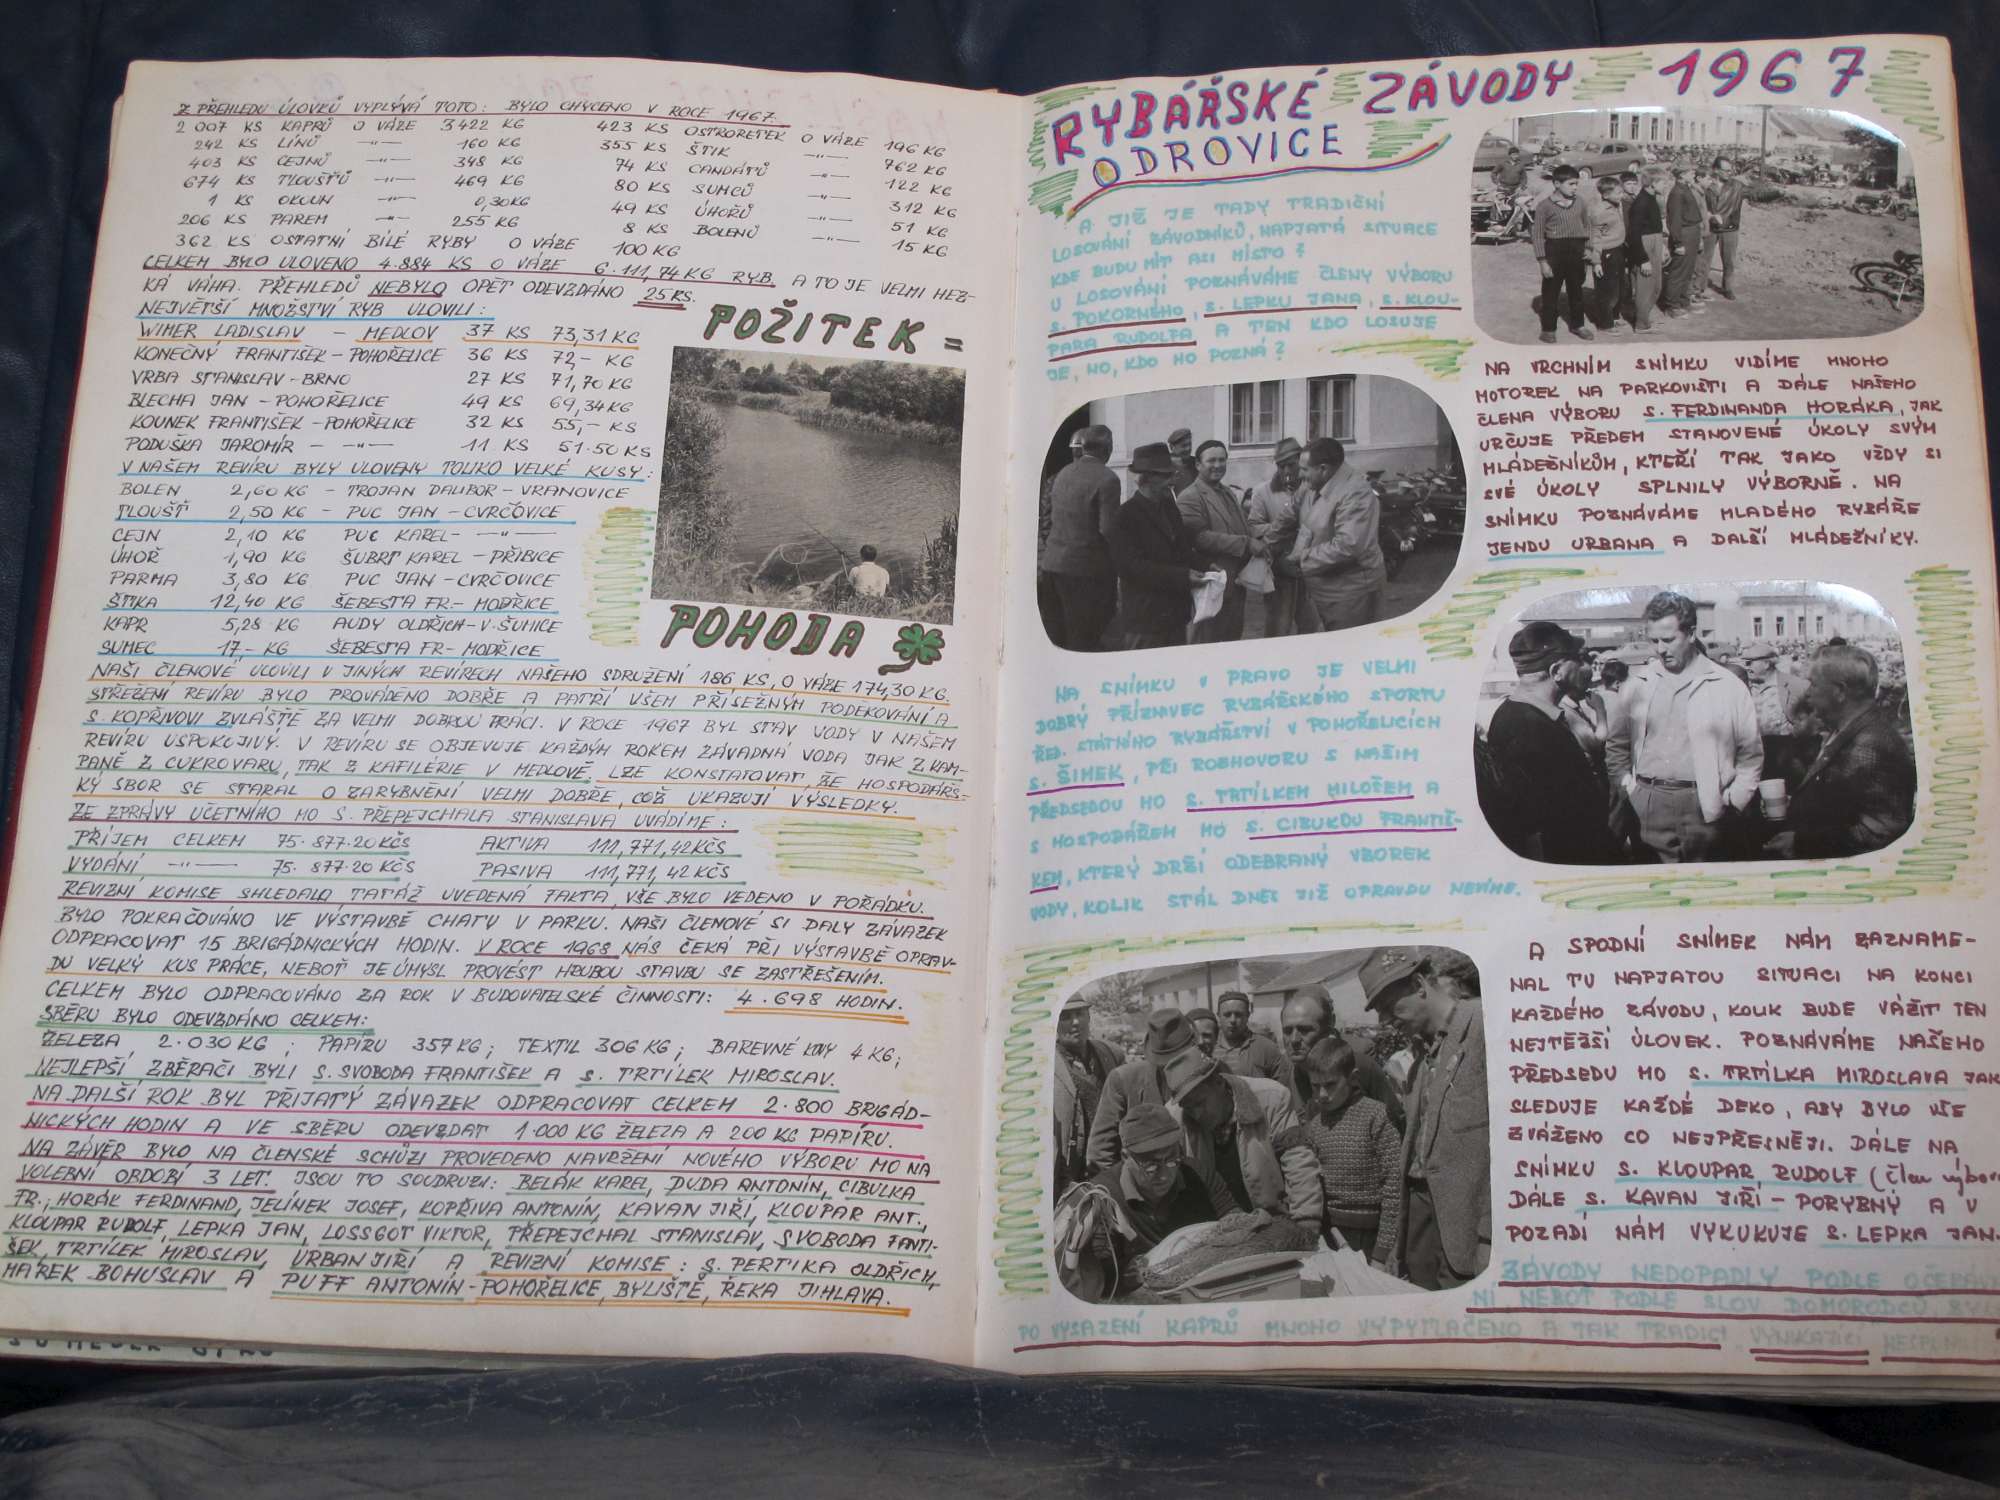 Z PŘEHLEDU ÚLOVKŮ VYPLÝVÁ TOTO: BYLO CHYCENO V ROCE 1967
2 007 KS KAPRŮ O VÁZE 3422 KG
242 KS LÍNŮ -"- 160 KG
403 KS CEJNŮ -"- 348 KG
674 KS TLOUŠŤŮ -"- 469 KG
1 KS OKOUN 0,30KG
206 KS PAREM -"- 255 KG
362 KS OSTATNÍ BÍLÉ RYBY O VÁZE 100 KG
423 KS OSTRORETEK O VÁZE 196 KG
355 KS ŠTIK -"- 762 KG
74 KS CANDÁTŮ -"- 122 KG
80 KS SUMCŮ 312 KG
49 KS ÚHOŘŮ -"- 51 KG
8 KS BOLENŮ -"- 15 KG
CELKEM BYLO ULOVENO 4.884 KS O VÁZE 6.111,74 KG RYB. A TO JE VELMI HEZ-
KÁ VÁHA. PŘEHLEDŮ NEBYLO OPĚT ODEVZDÁNO 25 KS.
NEJVĚTŠÍ MNOŽSTVÍ RYB ULOVILI:
WIMER LADISLAV - MEDLOV 37 KS 73,31 KG
KONEČNÝ FRANTIŠEK - POHOŘELICE 36 KS 72,- KG
VRBA STANISLAV - BRNO 27 KS 71,70 KG
BLECHA JAN - POHOŘELICE 49 KS 69,34 KG
KOUNEK FRANTIŠEK - POHOŘELICE 32 KS 55,- KS
PODUŠKA JAROMÍR -"- 11 KS 51.50 KS
V NAŠEM REVÍRU BYLY ULOVENY TOLIKO VELKÉ KUSY:
BOLEN 2,60 KG - TROJAN DALIBOR - VRANOVICE
TLOUŠŤ 2,50 KG - PUC JAN - CVRČOVICE
CEJN 2,10 KG PUC KAREL - -"-
ÚHOŘ 1,90 KG ŠUBRT KAREL - PŘIBICE
PARMA 3,80 KG PUC JAN - CVRČOVICE
ŠTIKA 12,40 KG ŠEBESTA FR. - MODŘICE
KAPR 5,28 KG AUDY OLDŘICH - V. ŠUMICE
SUMEC 17,- KG ŠEBESTA FR - MODŘICE
POŽITEK =
POHODA
NAŠI ČLENOVÉ ULOVILI V JINÝCH REVÍRECH NAŠEHO SDRUŽENÍ 186 KS, O VÁZE 174,30 KG.
STŘEŽENÍ REVÍRU BYLO PROVÁDĚNO DOBŘE A PATŘÍ VŠEM PŘÍSEŽNÝM PODĚKOVÁNÍ A
S. KOPŘIVOVI ZVLÁŠTĚ ZA VELMI DOBROU PRÁCI. V ROCE 1967 BYL STAV VODY V NAŠEM
REVÍRU USPOKOJIVÝ. V REVÍRU SE OBJEVUJE KAŽDÝM ROKEM ZÁVADNÁ VODA JAK Z KAM-
PANĚ Z CUKROVARU, TAK Z KAFILÉRIE V MEDLOVĚ. LZE KONSTATOVAT, ŽE HOSPODÁŘS-
KÝ SBOR SE STARAL O ZARYBNĚNÍ VELMI DOBŘE, COŽ UKAZUJÍ VÝSLEDKY.
ZE ZPRÁVY ÚČETNÍHO MO S. PŘEPEJCHALA STANISLAVA UVÁDÍME:
PŘÍJEM CELKEM 75.877.20 KČS AKTIVA 111,771,42 KČS
VYDÁNÍ -"- 75.877.20 KČS PASIVA 111,771,42 KČS
REVIZNÍ KOMISE SHLEDALA TATÁŽ UVEDENÁ FAKTA, VŠE BYLO VEDENO V POŘÁDKU.
BYLO POKRAČOVÁNO VE VÝSTAVBĚ CHATY V PARKU. NAŠI ČLENOVÉ SI DALY ZÁVAZEK
ODPRACOVAT 15 BRIGÁDNICKÝCH HODIN. V ROCE 1968 NÁS ČEKÁ PŘI VÝSTAVBĚ OPRAV-
DU VELKÝ KUS PRÁCE, NEBOŤ JE ÚMYSL PROVÉST HRUBOU STAVBU SE ZASTŘEŠENÍM.
CELKEM BYLO ODPRACOVÁNO ZA ROK V BUDOVATELSKÉ ČINNOSTI: 4.698 HODIN.
SBĚRU BYLO ODEVZDÁNO CELKEM:
ŽELEZA 2.030 KG; PAPÍRU 357 KG; TEXTIL 306 KG; BAREVNÉ KOVY 4 KG;
NEJLEPŠÍ ZBĚRAČI BYLI S. SVOBODA FRANTIŠEK A S. TRTÍLEK MIROSLAV.
NA DALŠÍ ROK BYL PŘIJATÝ ZÁVAZEK ODPRACOVAT CELKEM 2.800 BRIGÁD-
NICKÝCH HODIN A VE SBĚRU ODEVZDAT 1.000 KG ŽELEZA A 200 KG PAPÍRU.
NA ZÁVĚR BYLO NA ČLENSKÉ SCHŮZI PROVEDENO NAVRŽENÍ NOVÉHO VÝBORU MO NA
VOLEBNÍ OBDOBÍ 3 LET. JSOU TO SOUDRUZI: BELÁK KAREL, DUDA ANTONÍN, CIBULKA
FR., HORÁK FERDINAND, JELÍNEK JOSEF, KOPŘIVA ANTONÍN, KAVAN JIŘÍ, KLOUPAR ANT.,
KLOUPAR RUDOLF, LEPKA JAN, LOSSGOT VIKTOR, PŘEPEJCHAL STANISLAV, SVOBODA FANTI-
ŠEK, TRTÍLEK MIROSLAV, URBAN JIŘÍ A REVIZNÍ KOMISE: S. PERTIKA OLDŘICH,
MAREK BOHUSLAV A PUFF ANTONÍN - POHOŘELICE, BYLIŠTĚ, ŘEKA JIHLAVA.
RYBÁŘSKÉ ZÁVODY 1967
ODROVICE
A JIŽ JE TADY TRADIČNÍ
LOSOVÁNÍ ZÁVODNÍKŮ, NAPJATÁ SITUACE
KDE BUDU MÍT ASI MÍSTO?
U LOSOVÁNÍ POZNÁVÁME ČLENY VÝBORU
S. POKORNÉHO, S. LEPKU JANA, S. KLOU-
PARA RUDOLFA A TEN KDO LOSUJE
JE, NO, KDO HO POZNÁ?
NA VRCHNÍM SNÍMKU VIDÍME MNOHO
MOTOREK NA PARKOVIŠTI A DÁLE NAŠEHO
ČLENA VÝBORU S. FERDINANDA HORÁKA, JAK
URČUJE PŘEDEM STANOVENÉ ÚKOLY SVÝM
MLÁDEŽNÍKŮM, KTEŘÍ TAK JAKO VŽDY SI
SVÉ ÚKOLY SPLNILY VÝBORNĚ. NA
SNÍMKU POZNÁVÁME MLADÉHO RYBÁŘE
JENDU URBANA A DALŠÍ MLÁDEŽNÍKY.
NA SNÍMKU V PRAVO JE VELMI
DOBRÝ PŘÍZNIVEC RYBÁŘSKÉHO SPORTU
ŘED. STÁTNÍHO RYBÁŘSTVÍ V POHOŘELICÍCH
S. ŠIMEK, PŘI ROZHOVORU S NAŠIM
PŘEDSEDOU MO S. TRTÍLKEM MILOŠEM A
S HOSPODÁŘEM MO S. CIBUKOU FRANTIŠ-
KEM, KTERÝ DRŽÍ ODEBRANÝ VZOREK
VODY, KOLIK STÁL DNES JIŽ OPRAVDU NEVÍME.
A SPODNÍ SNÍMEK NÁM ZAZNAME-
NAL TU NAPJATOU SITUACI NA KONCI
KAŽDÉHO ZÁVODU, KOLIK BUDE VÁŽIT TEN
NEJTĚŽŠÍ ÚLOVEK. POZNÁVÁME NAŠEHO
PŘEDSEDU MO S. TRTÍLKA MIROSLAVA JAK
SLEDUJE KAŽDÉ DEKO, ABY BYLO VŠE
ZVÁŽENO CO NEJPŘESNĚJI. DÁLE NA
SNÍMKU S. KLOUPAR RUDOLF (člen výboru
DÁLE S. KAVAN JIŘÍ - PORYBNÝ A V
POZADÍ NÁM VYKUKUJE S. LEPKA JAN.
ZÁVODY NEDOPADLY PODLE OČEKÁVÁ
NÍ, NEBOŤ PODLE SLOV DOMORODCŮ, BYLO
PO VYSAZENÍ KAPRŮ MNOHO VYPYTLAČENO A TAK TRADICI VYNIKAJÍCÍ